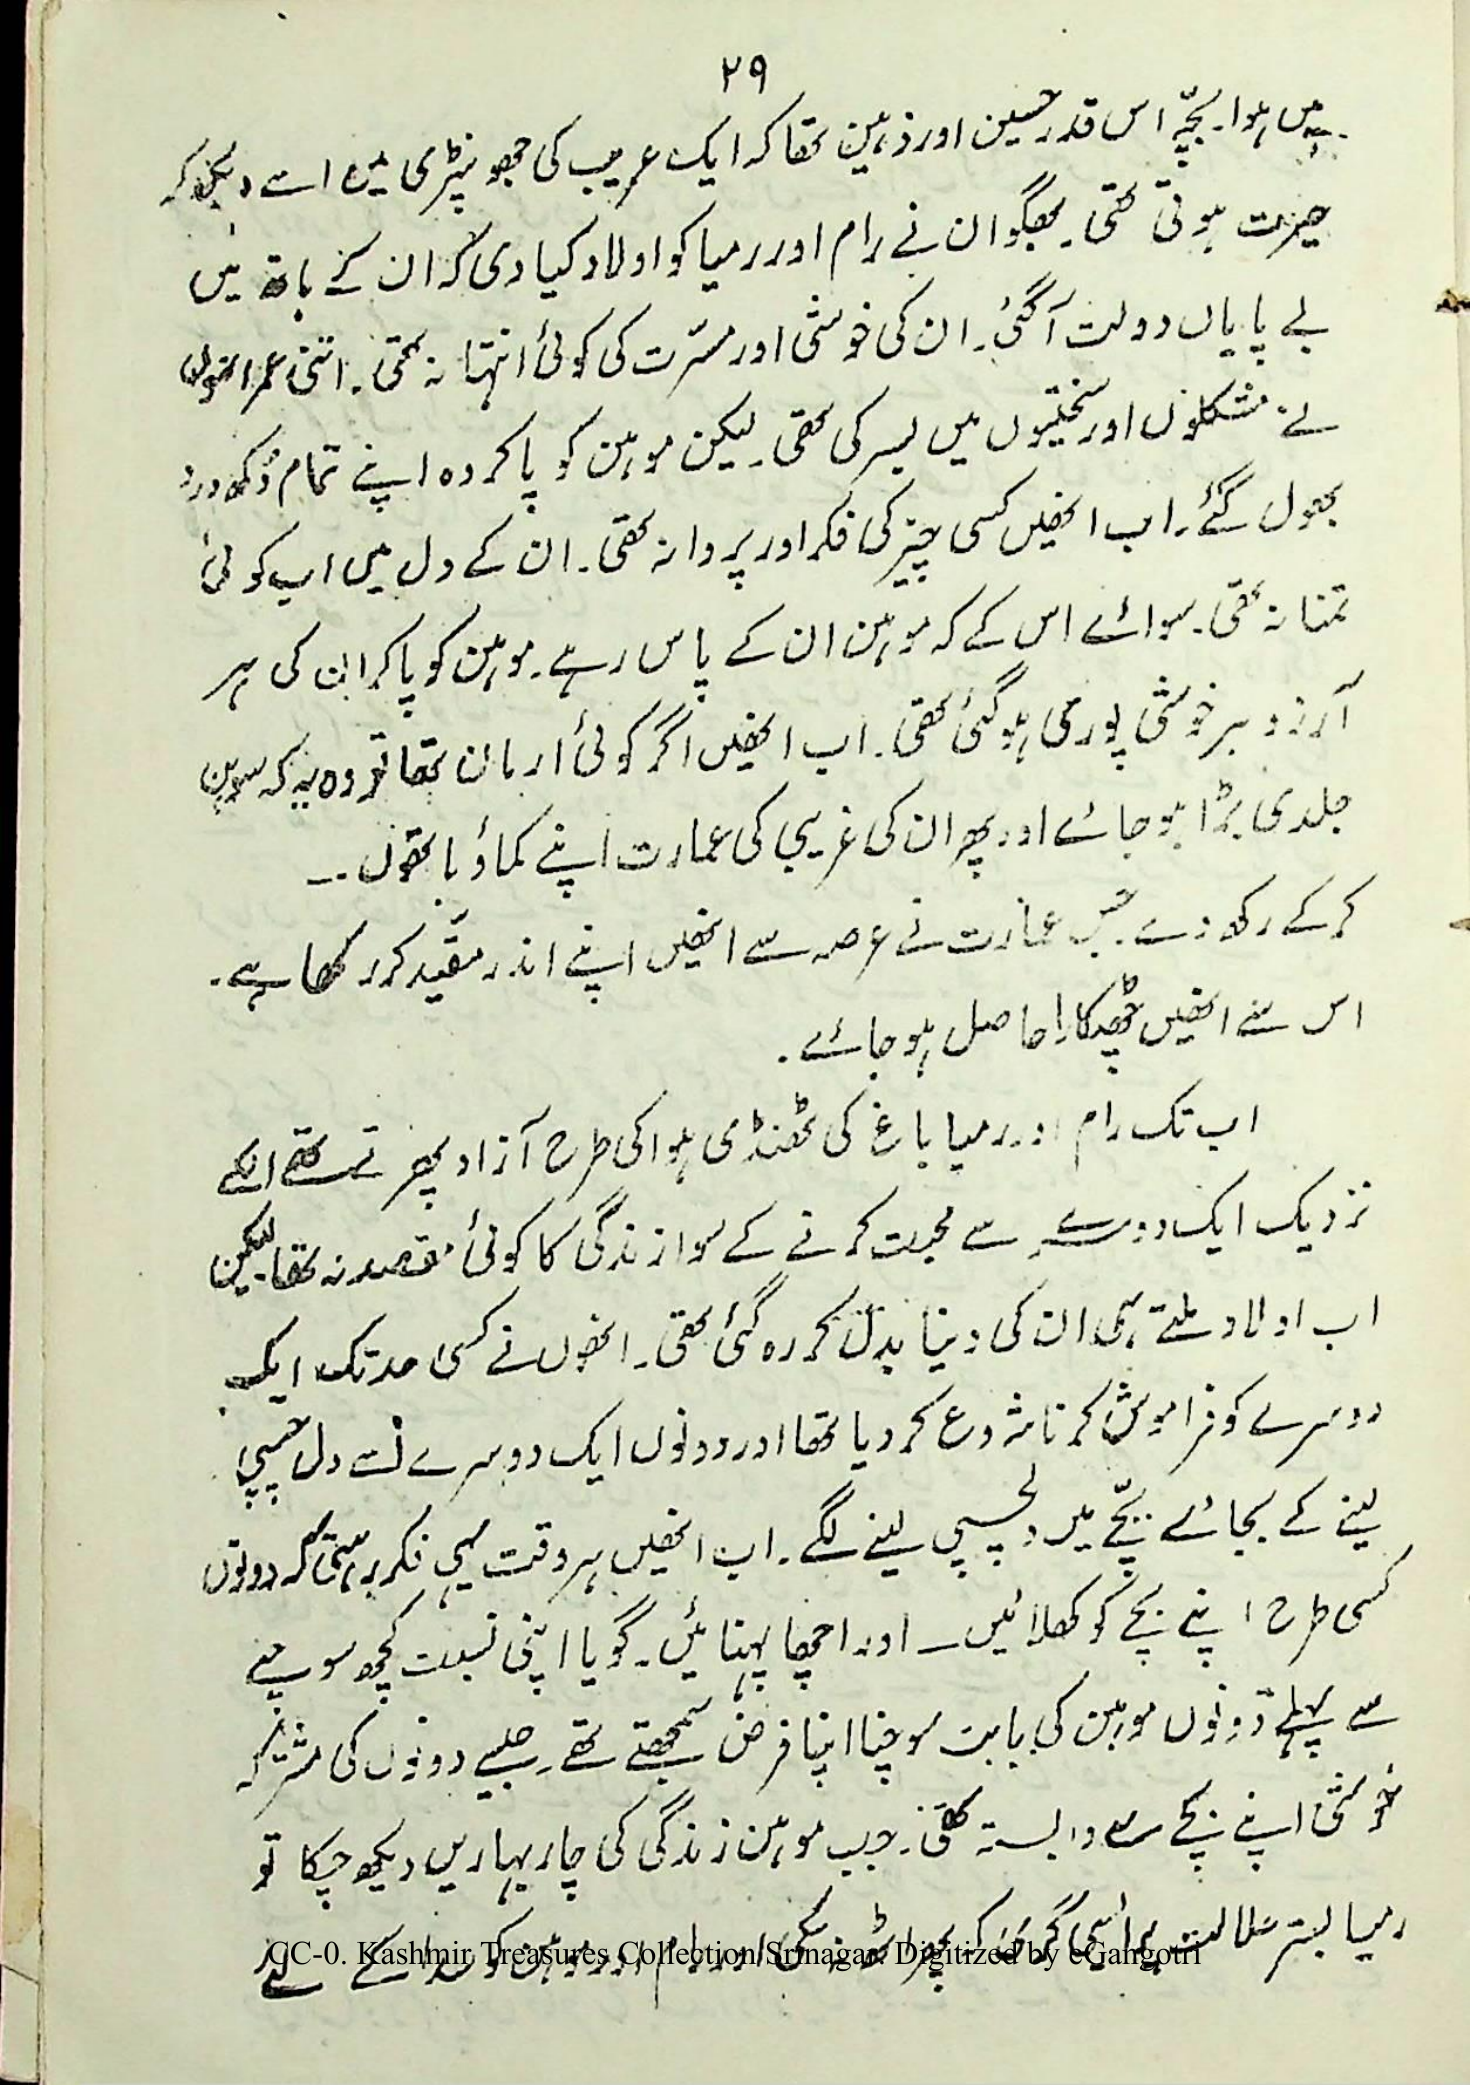 ۲۹
پیدا ہوا۔ بچّہ اس قدر حسین اور ذہین تھا کہ ایک غریب کی جھونپڑی میں اسے دیکھ کر
حیرت ہوتی تھی۔ بھگوان نے رام اور رمیا کو اولاد کیا دی کہ ان کے ہاتھ میں
بے پایاں دولت آگئی۔ ان کی خوشی اور مسرّت کی کوئی انتہا نہ تھی۔ اتنی عمر انھوں
نے مشکلوں اور سختیوں میں بسر کی تھی۔ لیکن موہن کو پاکر وہ اپنے تمام دُکھ درد
بھول گئے۔ اب انھیں کسی چیز کی فکر اور پروا نہ تھی۔ ان کے دل میں اب کوئی
تمنا نہ تھی۔ سوائے اس کے کہ موہن ان کے پاس رہے۔ موہن کو پاکر ان کی ہر
آرزو ہر خوشی پوری ہو گئی تھی۔ اب انھیں اگر کوئی ارمان تھا تو وہ یہ کہ موہن
جلدی بڑا ہو جائے اور پھر ان کی غریبی کی عمارت اپنے کماؤ ہاتھوں ــ
کرکے رکھ دے۔ جس عمارت نے عرصہ سے انھیں اپنے اندر مقیّد کر رکھا ہے۔
اس سے انھیں چھٹکارا حاصل ہو جائے۔
اب تک رام اور رمیا باغ کی ٹھنڈی ہوا کی طرح آزاد پھرتے تھے انکے
نزدیک ایک دوسرے سے محبت کرنے کے سوا زندگی کا کوئی مقصد نہ تھا۔ لیکن
اب اولاد ملتے ہی ان کی دنیا بدل کر رہ گئی تھی۔ انھوں نے کسی حد تک ایک
دوسرے کو فراموش کرنا شروع کر دیا تھا اور دونوں ایک دوسرے سے دل چسپی
لینے کے بجائے بچّے میں دلچسپی لینے لگے۔ اب انھیں ہر وقت یہی فکر رہتی کہ دونوں
کسی طرح اپنے بچے کو کھلائیں ــ اور اچھا پہنائیں۔ گویا اپنی نسبت کچھ سوچنے
سے پہلے دونوں موہن کی بابت سوچنا اپنا فرض سمجھتے تھے۔ جیسے دونوں کی مشترکہ
خوشی اپنے بچے سے وابستہ تھی۔ جب موہن زندگی کی چار بہاریں دیکھ چکا تو
رمیا بستر علالت پر ایسی گری کہ پھر اٹھ نہ سکی اور رام اور موہن کو سدا کے لئے
CC-0. Kashmir Treasures Collection Srinagar. Digitized by eGangotri